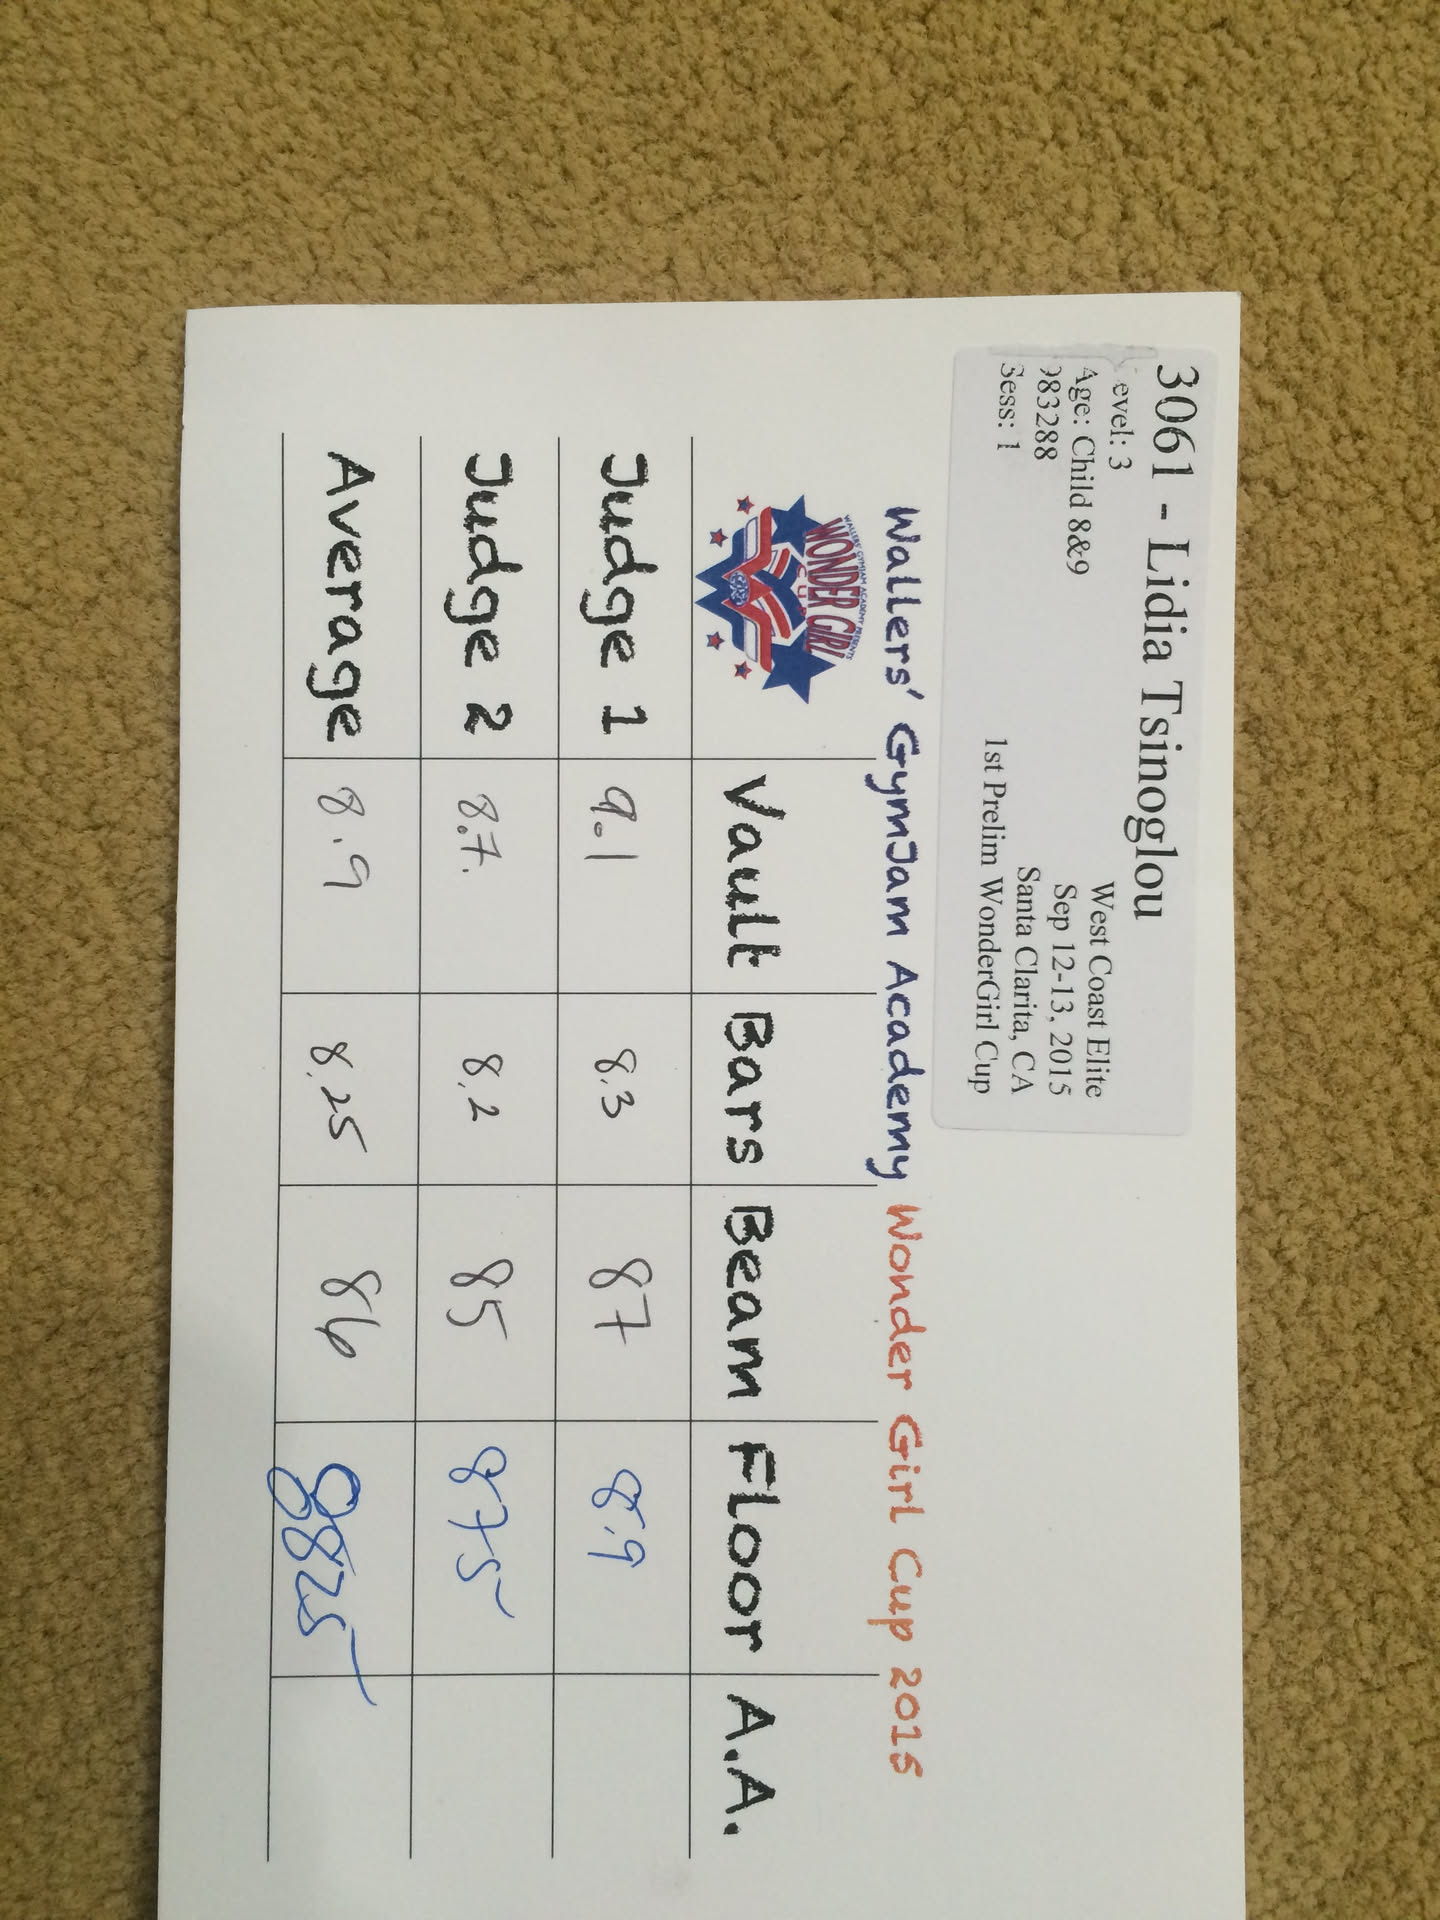 3061 - Lidia Tsinoglou
evel: 3 West Coast Elite
Age: Child 8&9 Sep 12-13, 2015
983288 Santa Clarita, CA
Sess: 1 1st Prelim WonderGirl Cup
Wallers' GymJam Academy Wonder Girl Cup 2015
WALLERS' GYMJAM ACADEMY PRESENTS
WONDER GIRL
CUP
Vault Bars Beam Floor A.A.
Judge 1 9.1 8.3 87 8.9
Judge 2 8.7. 8.2 85 875
Average 8.9 8.25 86 8825